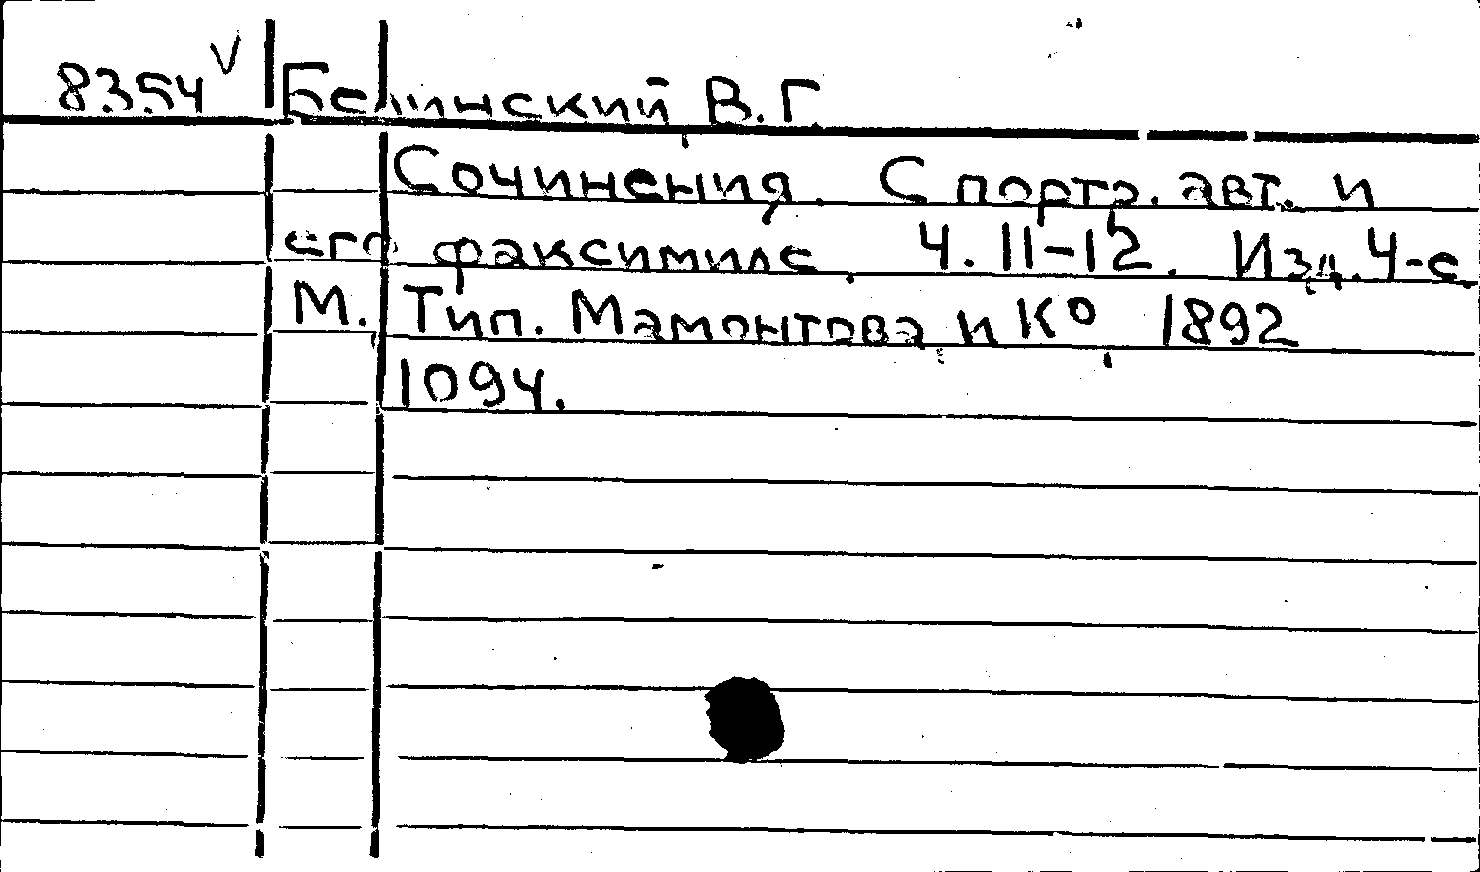 8354 V Белинский В.Г.
Сочинения. С портр. авт. и
его факсимиле. Ч. 11-12. Изд. 4-е.
М., Тип. Мамонтова и К°, 1892
1094.